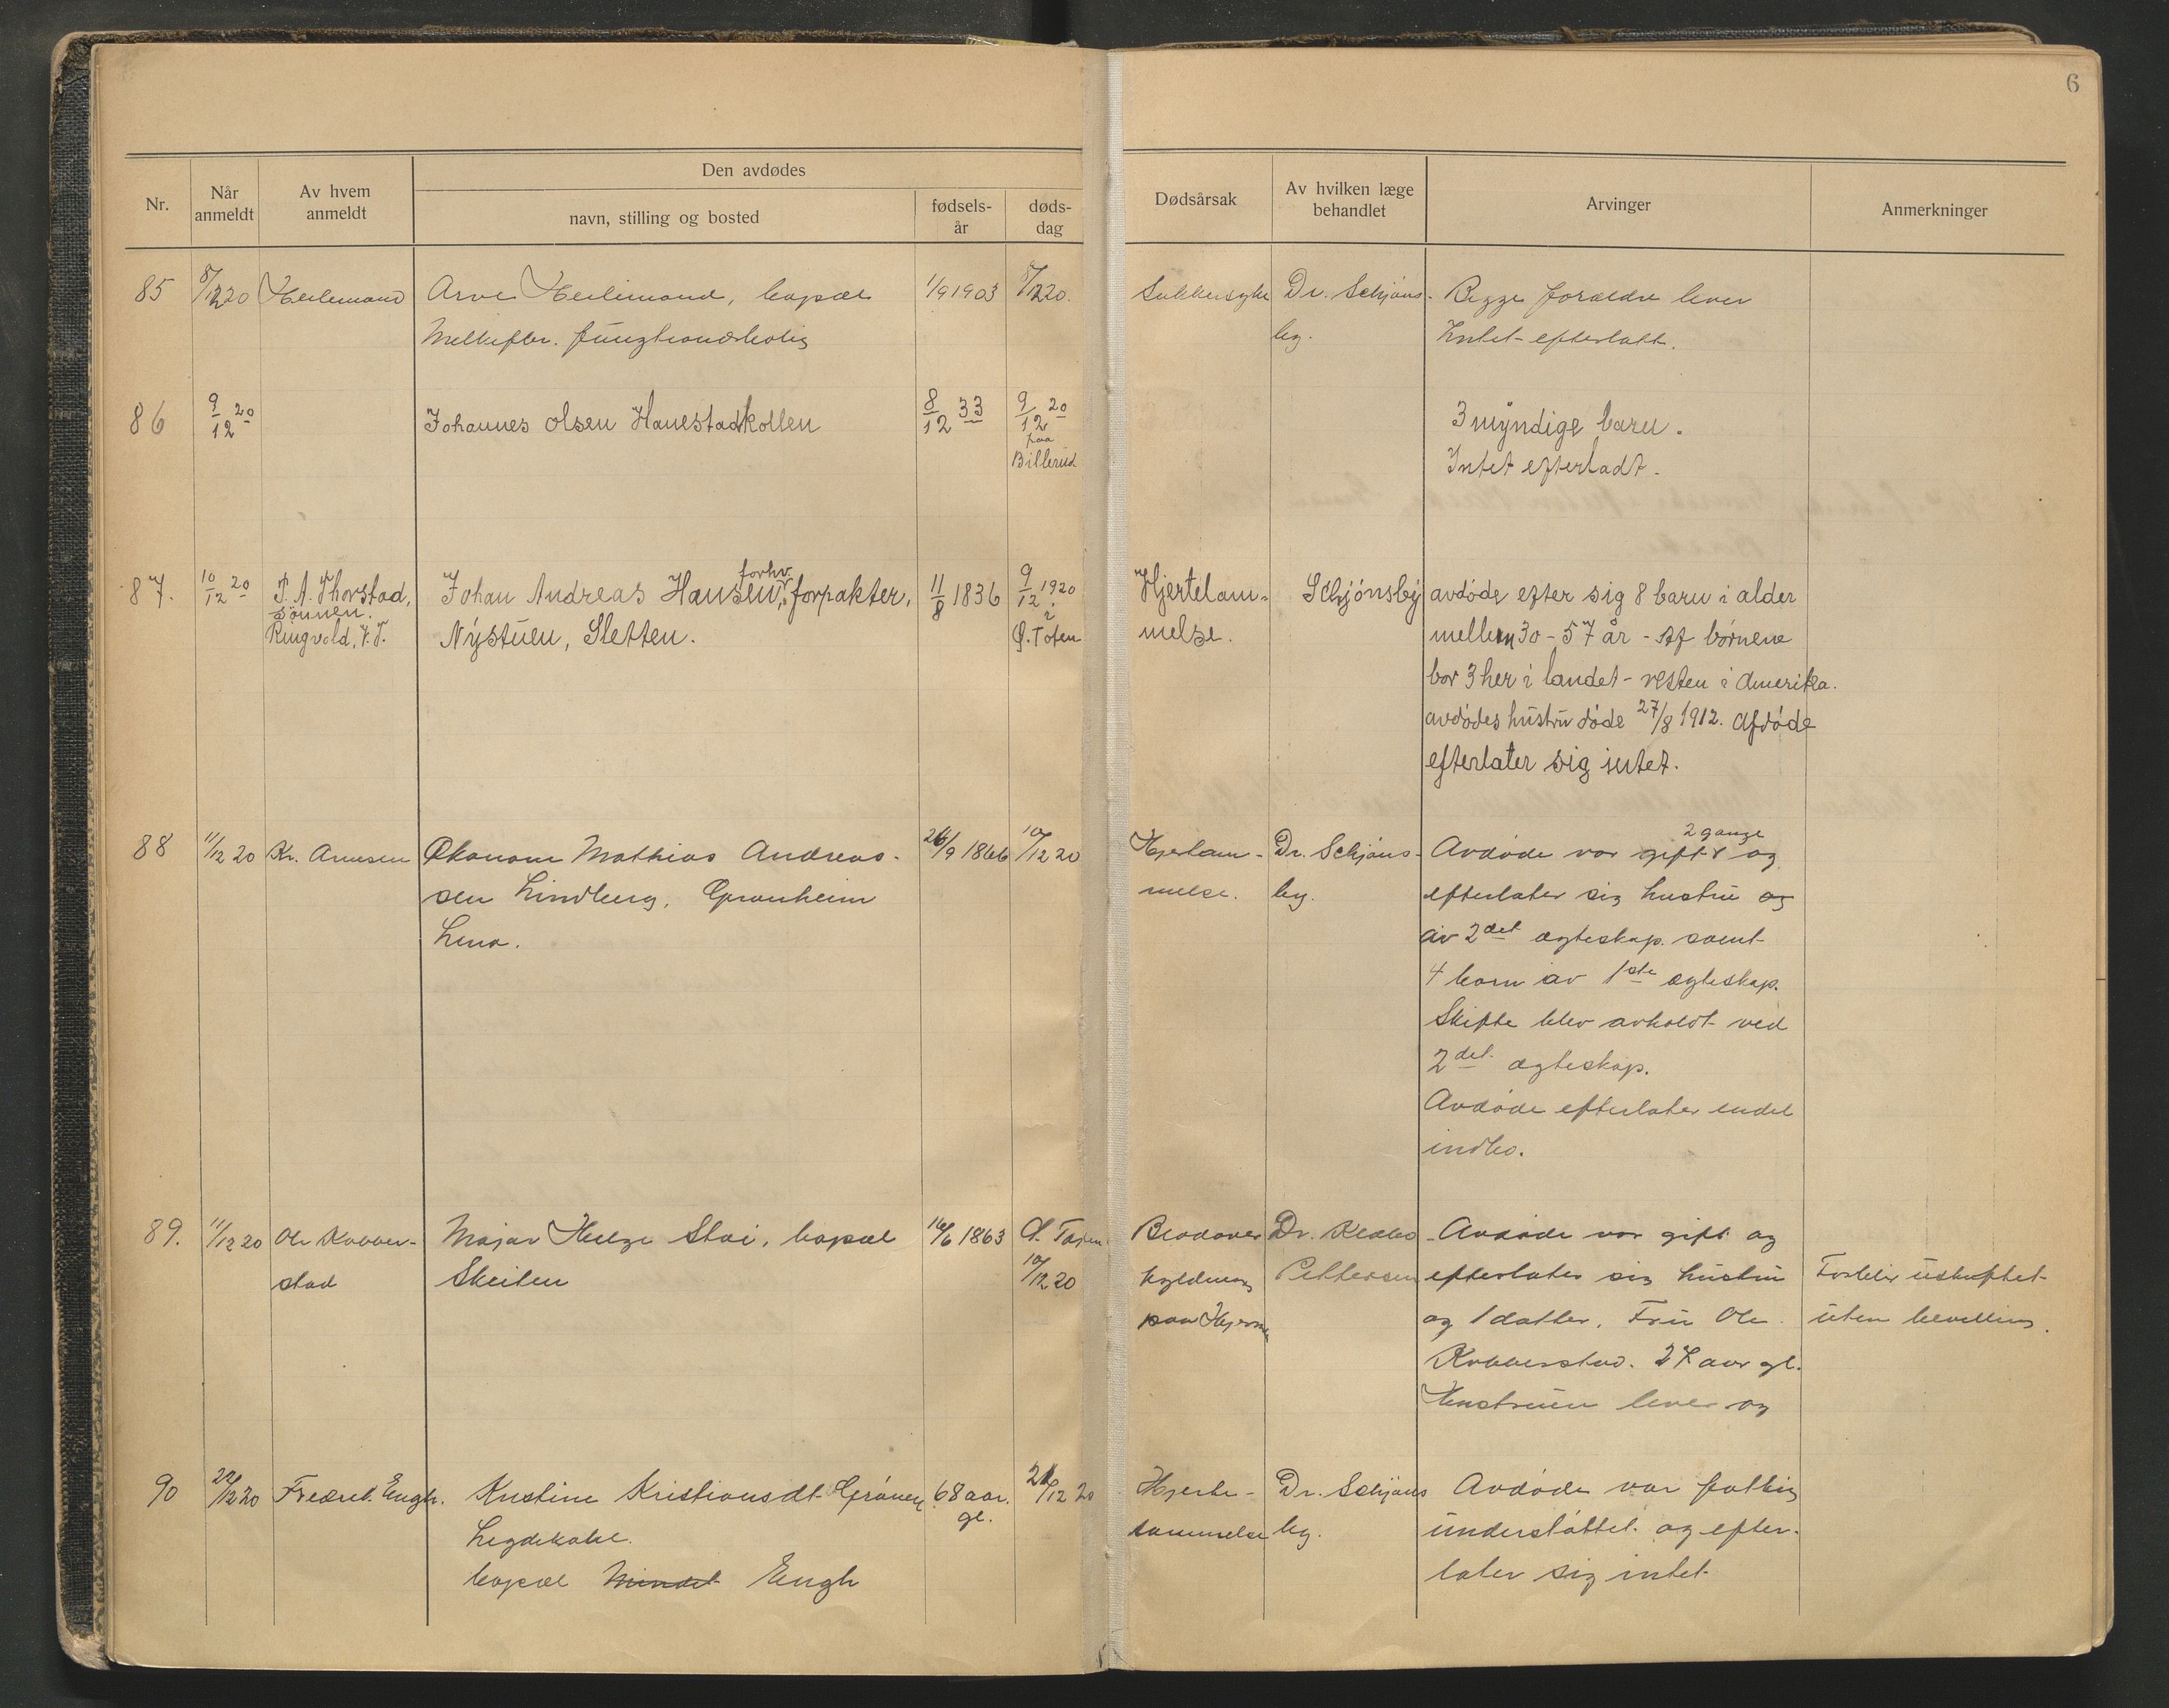 6
Den avdødes
Nr.
Når anmeldt
Av hvem anmeldt
navn, stilling og bosted
fødsels-år
døds-dag
Dødsårsak
Av hvilken læge behandlet
Arvinger
Anmerkninger
85 8/12 20 Heilemand Arve Heilemand, bopæl 1/9 1903 8/12 20. Sukkersyke Dr. Schjøns- Begge foræeldre lever
Melkefbr. funգtionærbolig by. Intet efterlatt.
86 9/12 20 Johannes Olsen Hanestadkollen 8/12 33 9/12 20 3 myndige barn.
paa
Billerud Intet efterladt.
forhv.
87. 10/12 20 T. A. Thorstad, Johan Andreas Hansen, forpakter, 11/8 1836 9/12 1920 Hjertelam- Schjønsby avdøde efter sig 8 barn i alder
sønnen.
Ringvold, V. T. Nystuen, Sletten. i Ø. Toten melse. mellem 30 - 57 år - Af børnene
bor 3 her i landet - resten i Amerika.
avdødes hustru døde 27/8 1912. Afdøde
efterlater sig intet.
2 gange
88 11/12 20 Kr. Arnesen Økonom Mathias Andreas- 26/9 1866 10/12 20 Hjertelam- Dr. Schjøns- Avdøde var gift og
sen Lindberg, Granheim melse. by. efterlater sig hustru og
Lena. av 2det ægteskap samt
4 barn av 1ste ægteskap.
Skifte blev avholdt ved
2det ægteskap.
Avdøde efterlater endel
indbo.
89. 11/12 20 Ole Kobber- Major Helge Stai, bopæl 16/6 1863 Ø. Toten Blodover Dr. Kledbo Avdøde var gift og
stad Skeiten 10/12 20 hyldning Pettersen efterlater sig hustru Forblir uskiftet
paa Hjernen og 1 datter, Fru Ole uten bevilling.
Kobberstad. 27 aar gl.
Hustruen lever og
90 22/12 20 Fredrik Engh. Kristine Kristiansdt. Grønen 68 aar. 21/12 20 Hjerte- Dr. Schjøns Avdøde var fattig
Legdekone. gl. lammelse by. understøttet og efter-
bopæl Mindet Engh later sig intet